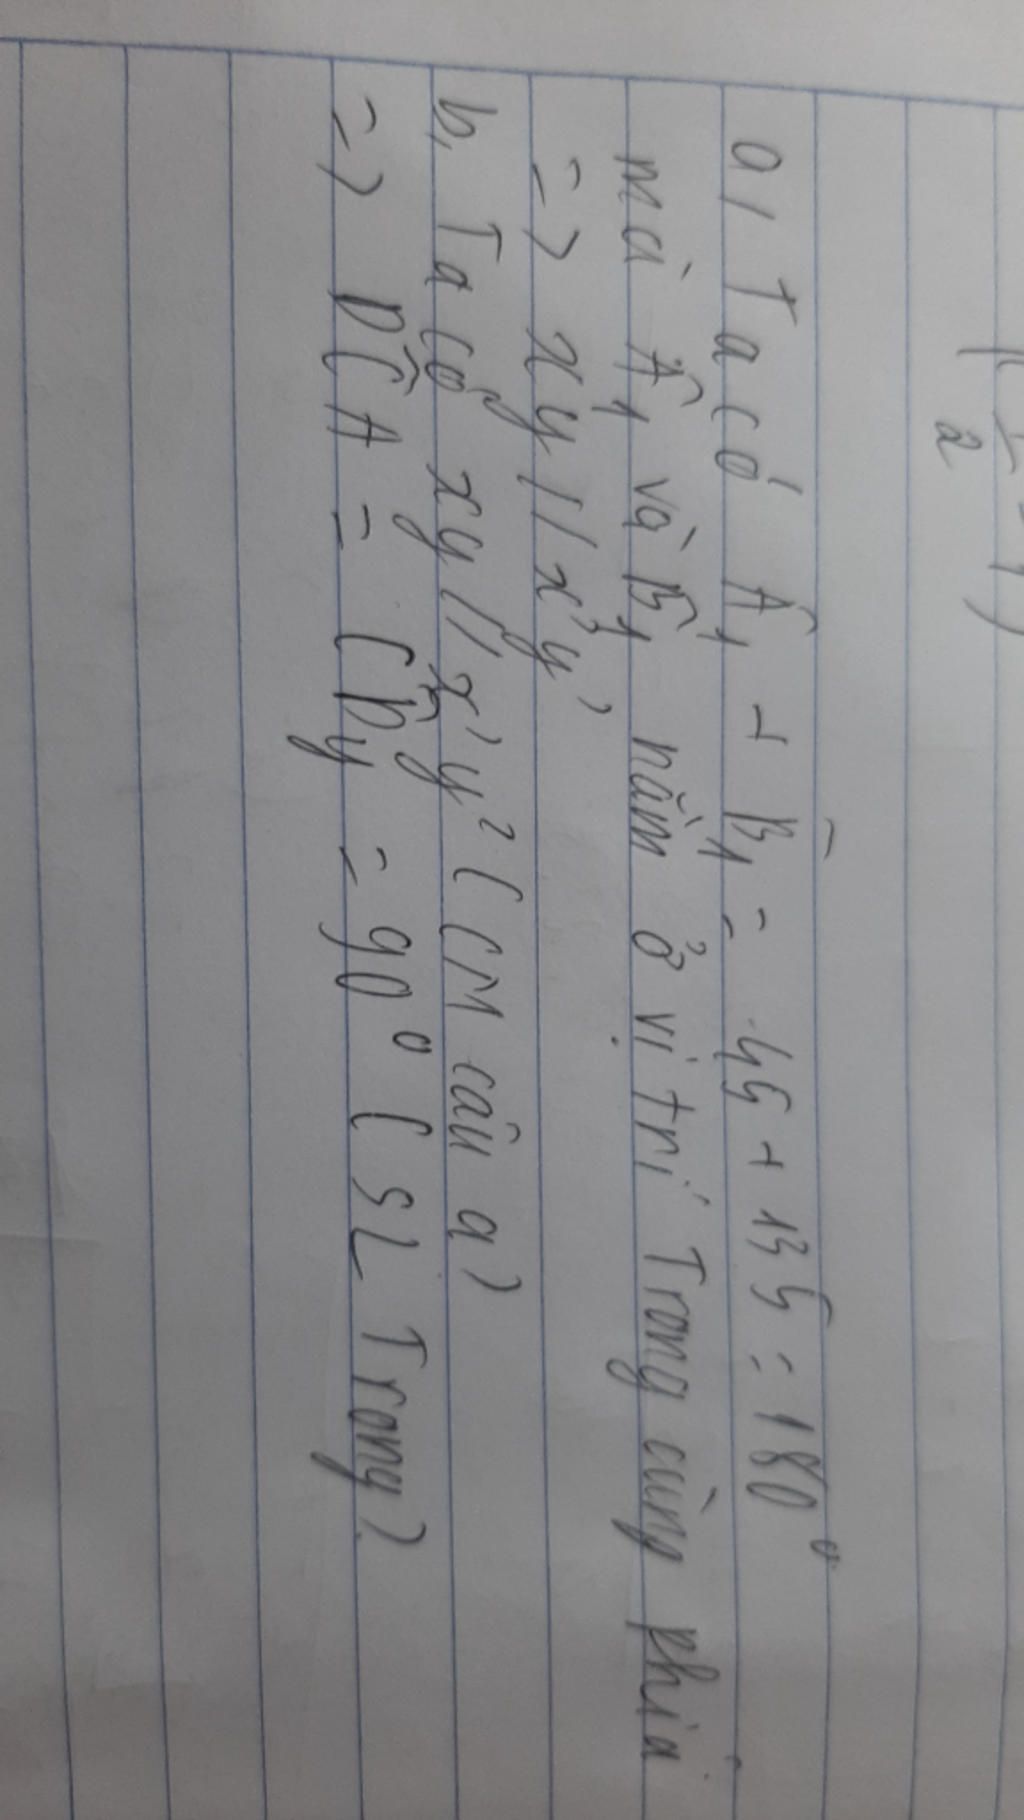 a, Ta có Â₁ + B̂₁ = 45 + 135 = 180°
mà Â₁ và B̂₁ nằm ở vị trí Trong cùng phía
=> xy // x'y'
b, Ta có xy // x'y' (CM câu a)
=> DĈA = CD̂y = 90° (SL Trong)